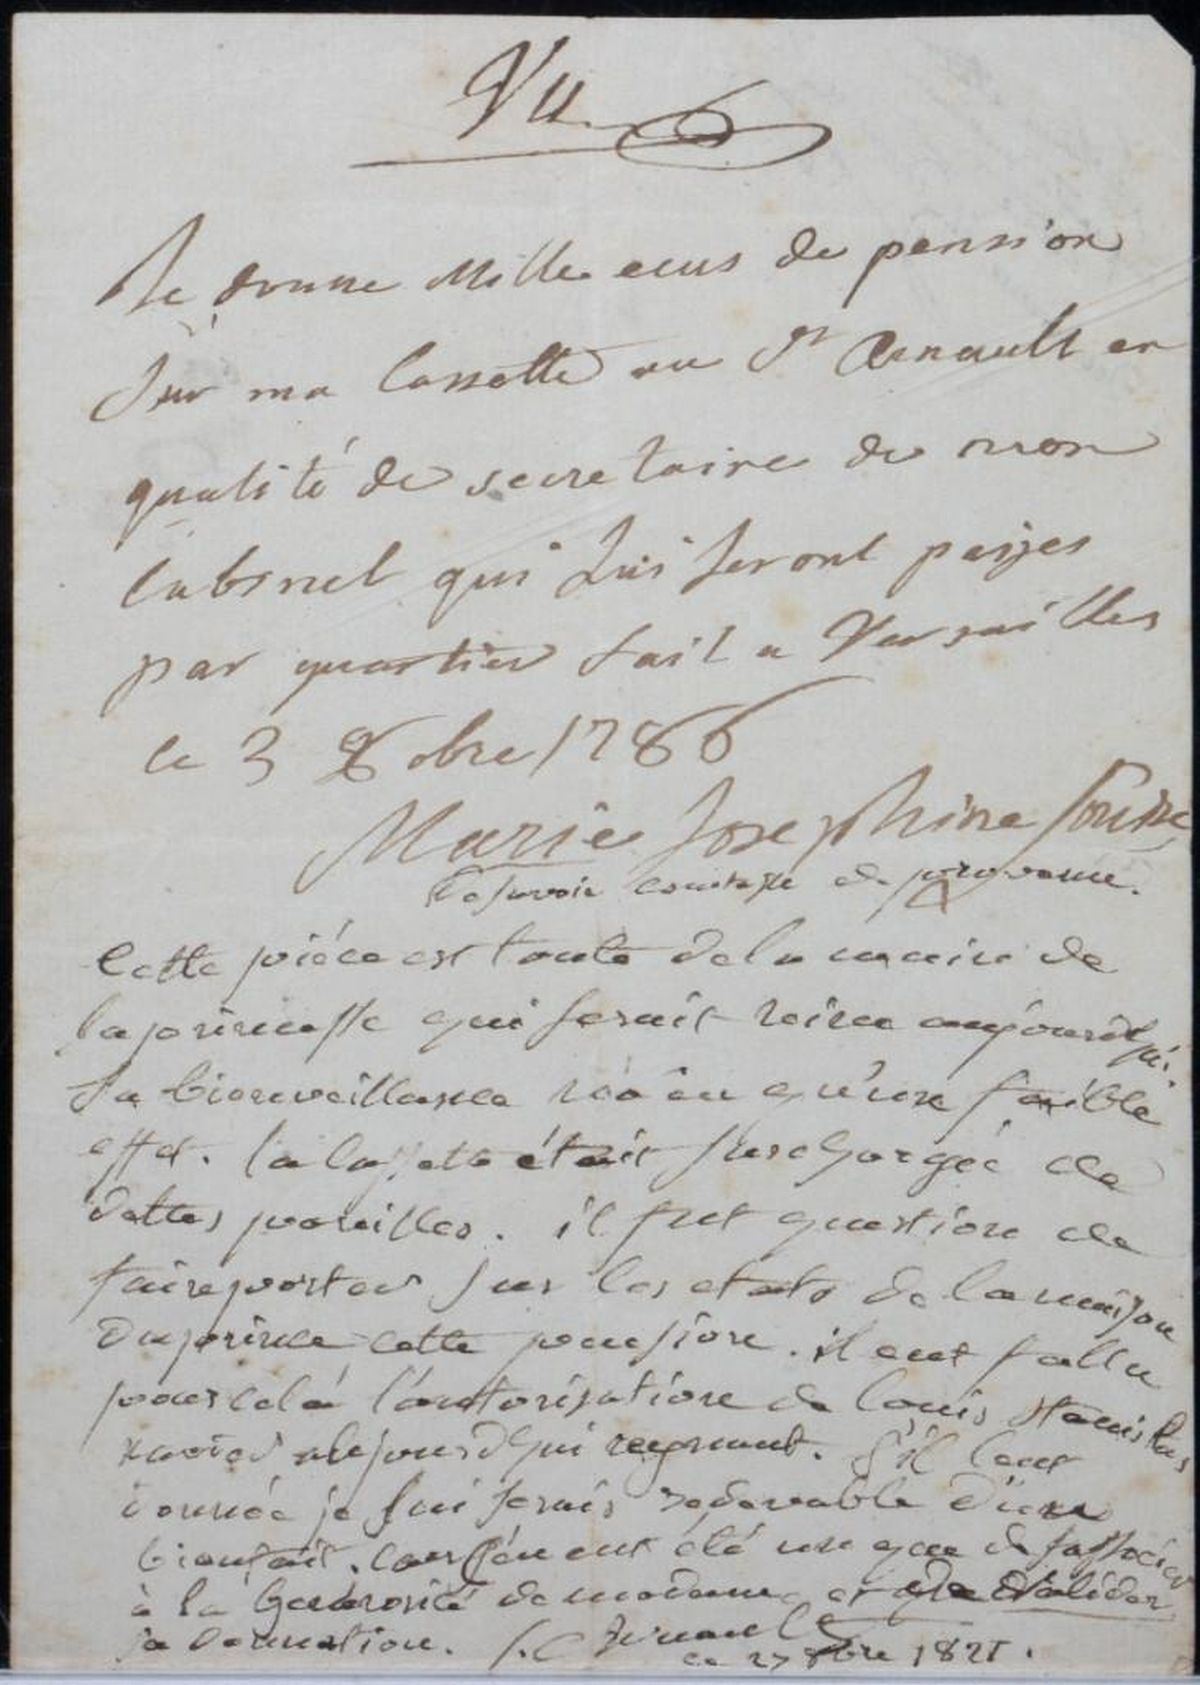 Vu
Je donne Mille ecus de pension
sur ma Cassette au Sr Arnault en
qualité de secretaire de mon
Cabinet qui lui seront payes
par quartier fait a Versailles
le 3 8obre 1786
Marie Josephine Louise
de savoie comtesse de provence.
Cette piéce est toute de la main de
la princesse qui serait reine aujourd'hui.
Sa bienveillance n'a eu qu'un faible
effet. Sa cassette était surchargée de
dettes pareilles. il fut question de
faire porter sur les etats de la maison
du prince cette pension. il eut fallu
pour cela l'autorisation de Louis Stanislas
xavier aujourd'hui regnant. S'il l'eut
donnée je lui serais redevable d'un
bienfait. car c'en eut été un que de s'associer
à la générosité de madame et de valider
sa donation. Arnault
ce 27 8bre 1821.